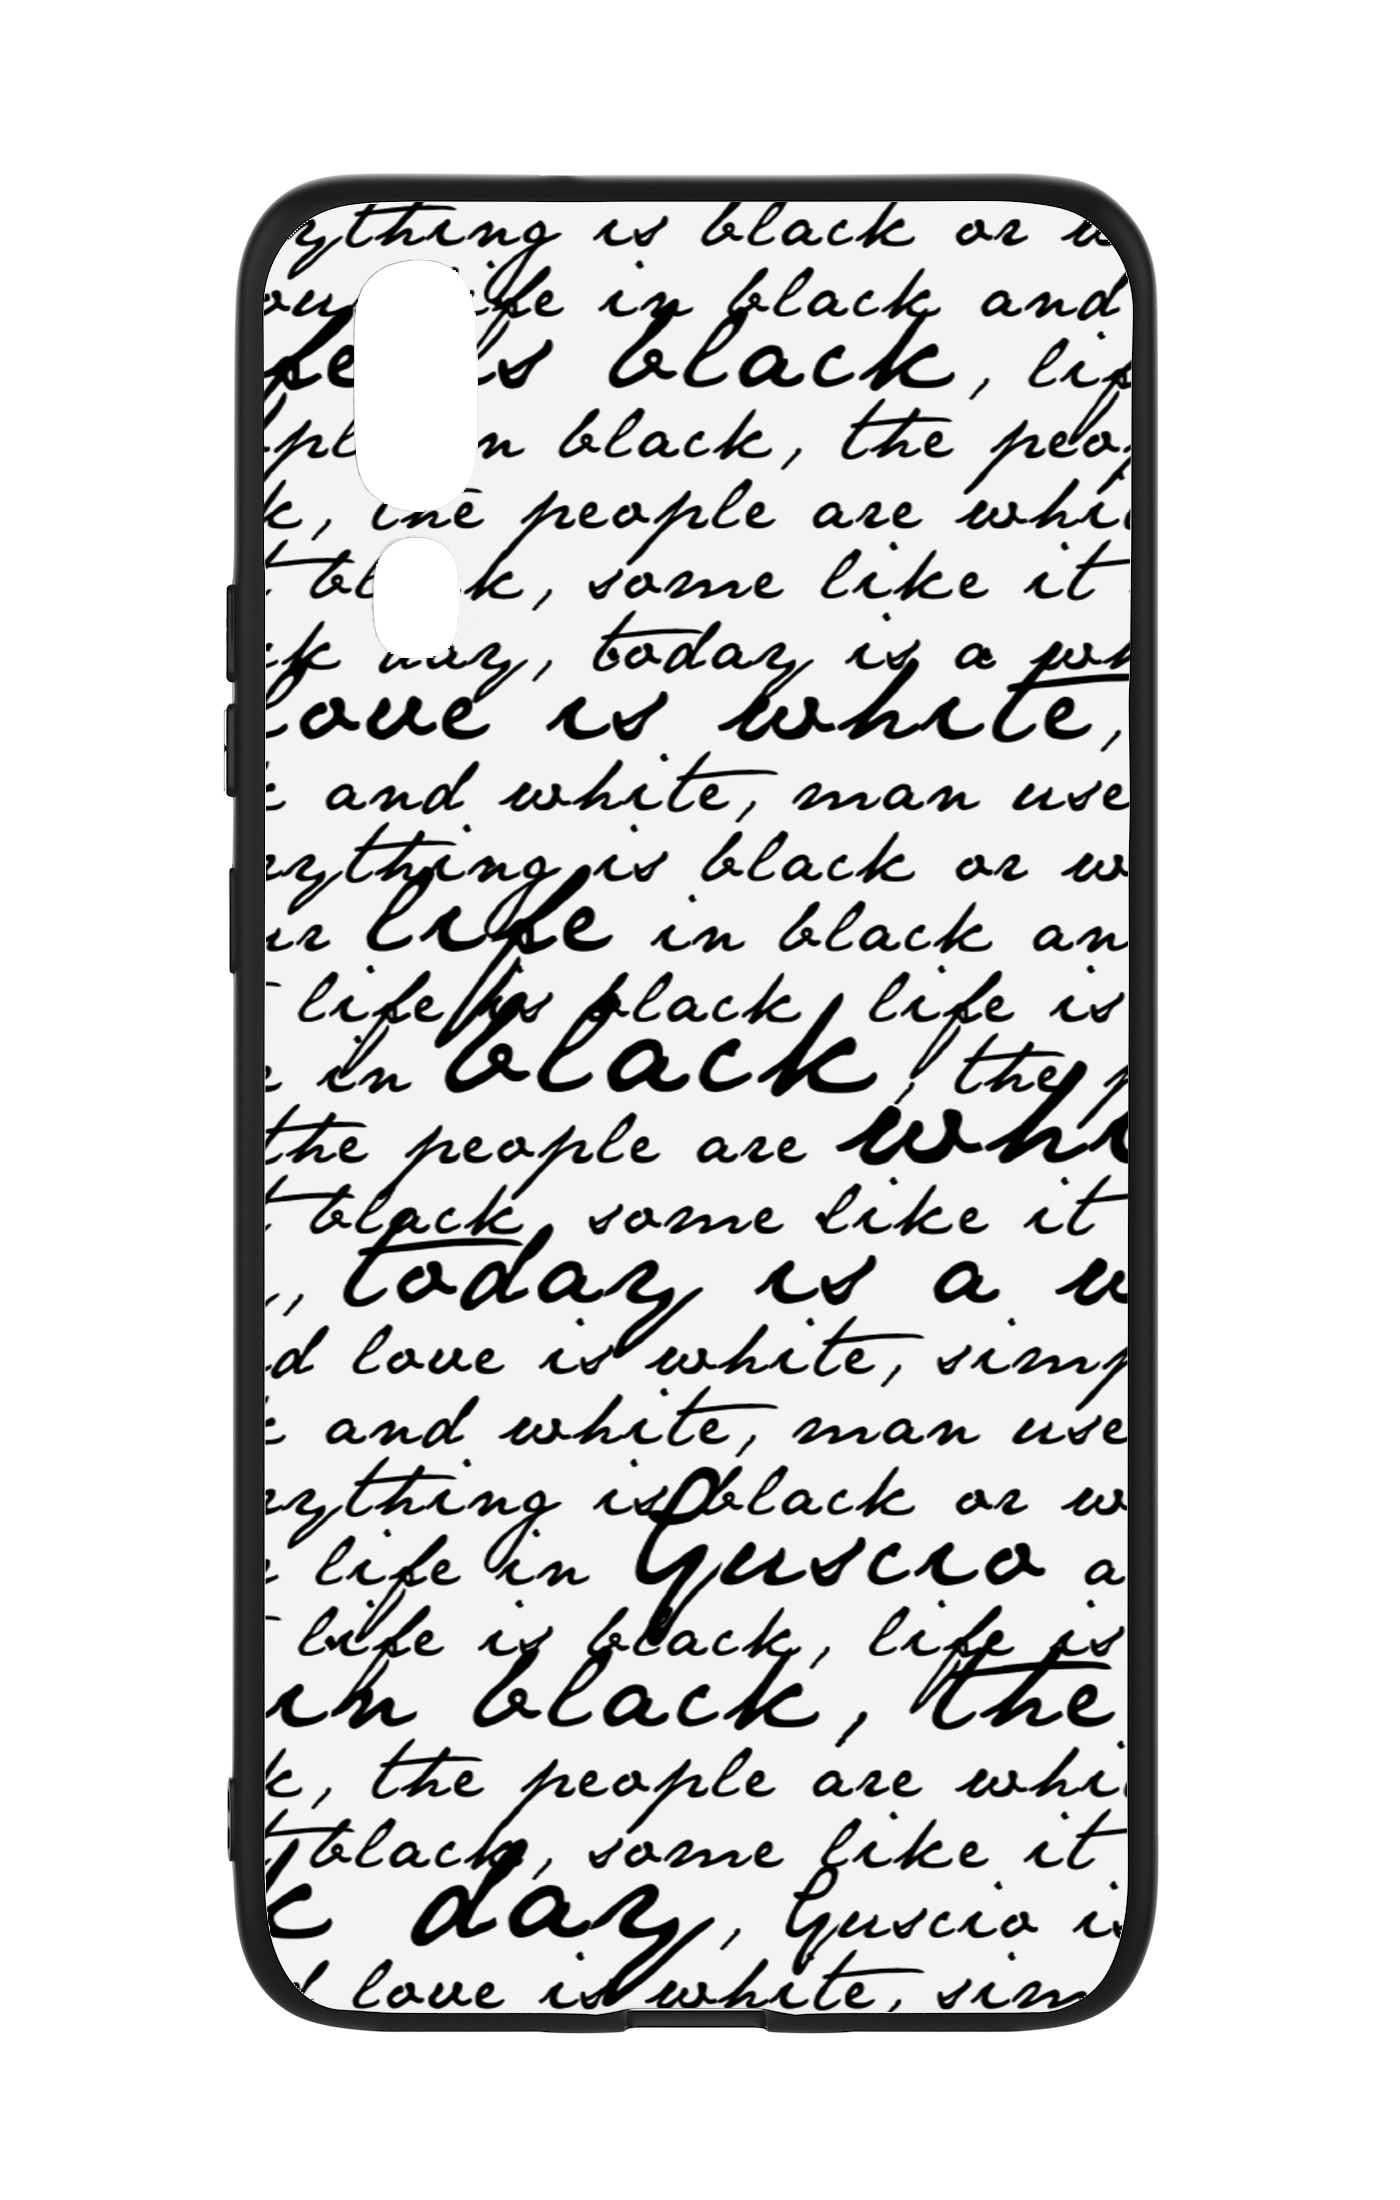 ything is black or w
ou life in black and
fe is black, lif
pl in black, the peop
k, the people are whi
t bl k, some like it
ck day, today is a wh
love is white,
k and white, man use
rything is black or w
ur life in black an
life is black, life is
e in black, the p
the people are whi
t black, some like it
, today is a w
d love is white, simp
k and white, man use
rything is black or w
life in Guscio a
life is black, life is
in black, the
k, the people are whi
t black, some like it
k day, Guscio is
d love is white, sim